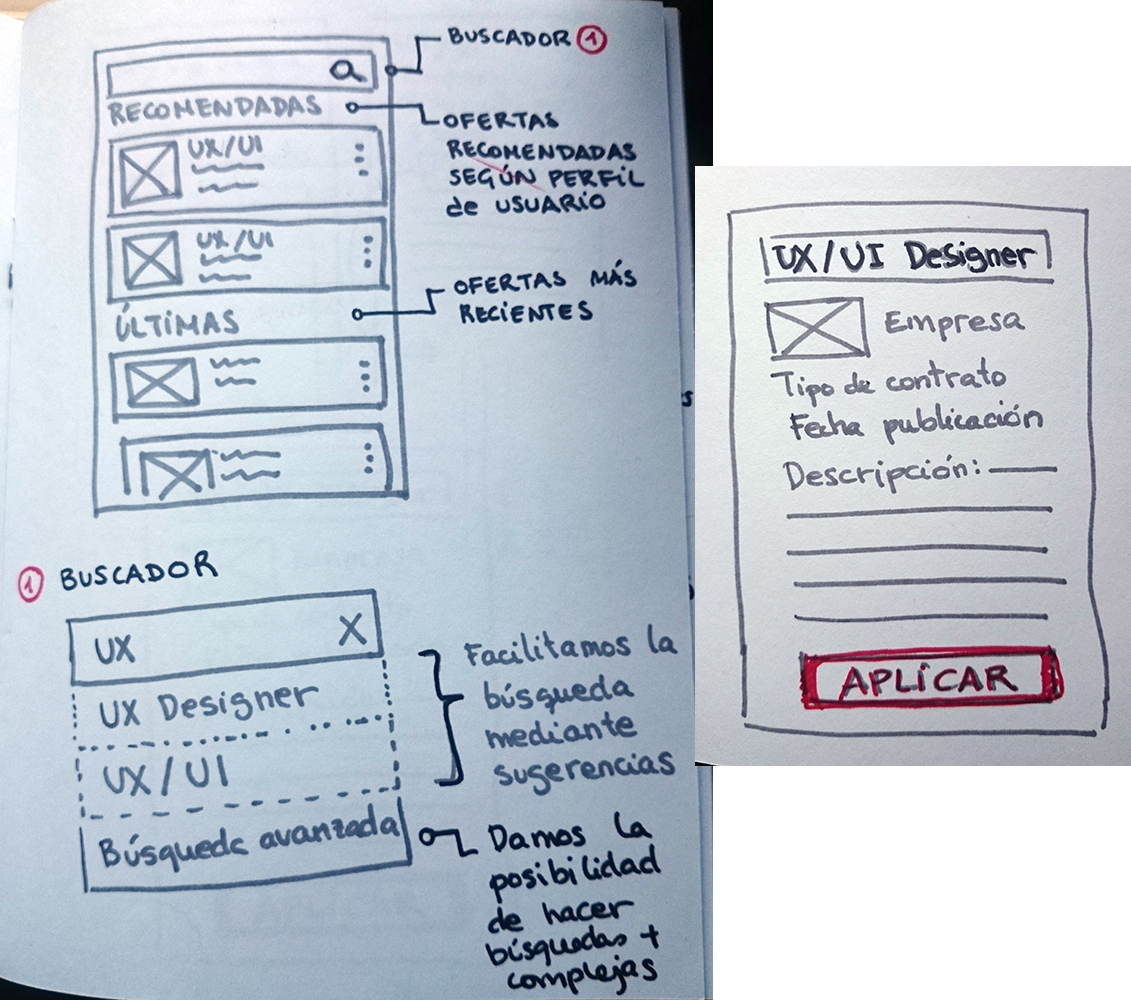 BUSCADOR 1
RECOMENDADAS
OFERTAS
RECOMENDADAS
SEGÚN PERFIL
de USUARIO
UX/UI
UX/UI
OFERTAS MÁS
RECIENTES
ÚLTIMAS
1 BUSCADOR
UX X
UX Designer
UX/UI
Búsqueda avanzada
Facilitamos la
búsqueda
mediante
sugerencias
Damos la
posibilidad
de hacer
búsquedas +
complejas
UX/UI Designer
Empresa
Tipo de contrato
Fecha publicación
Descripción:
APLICAR